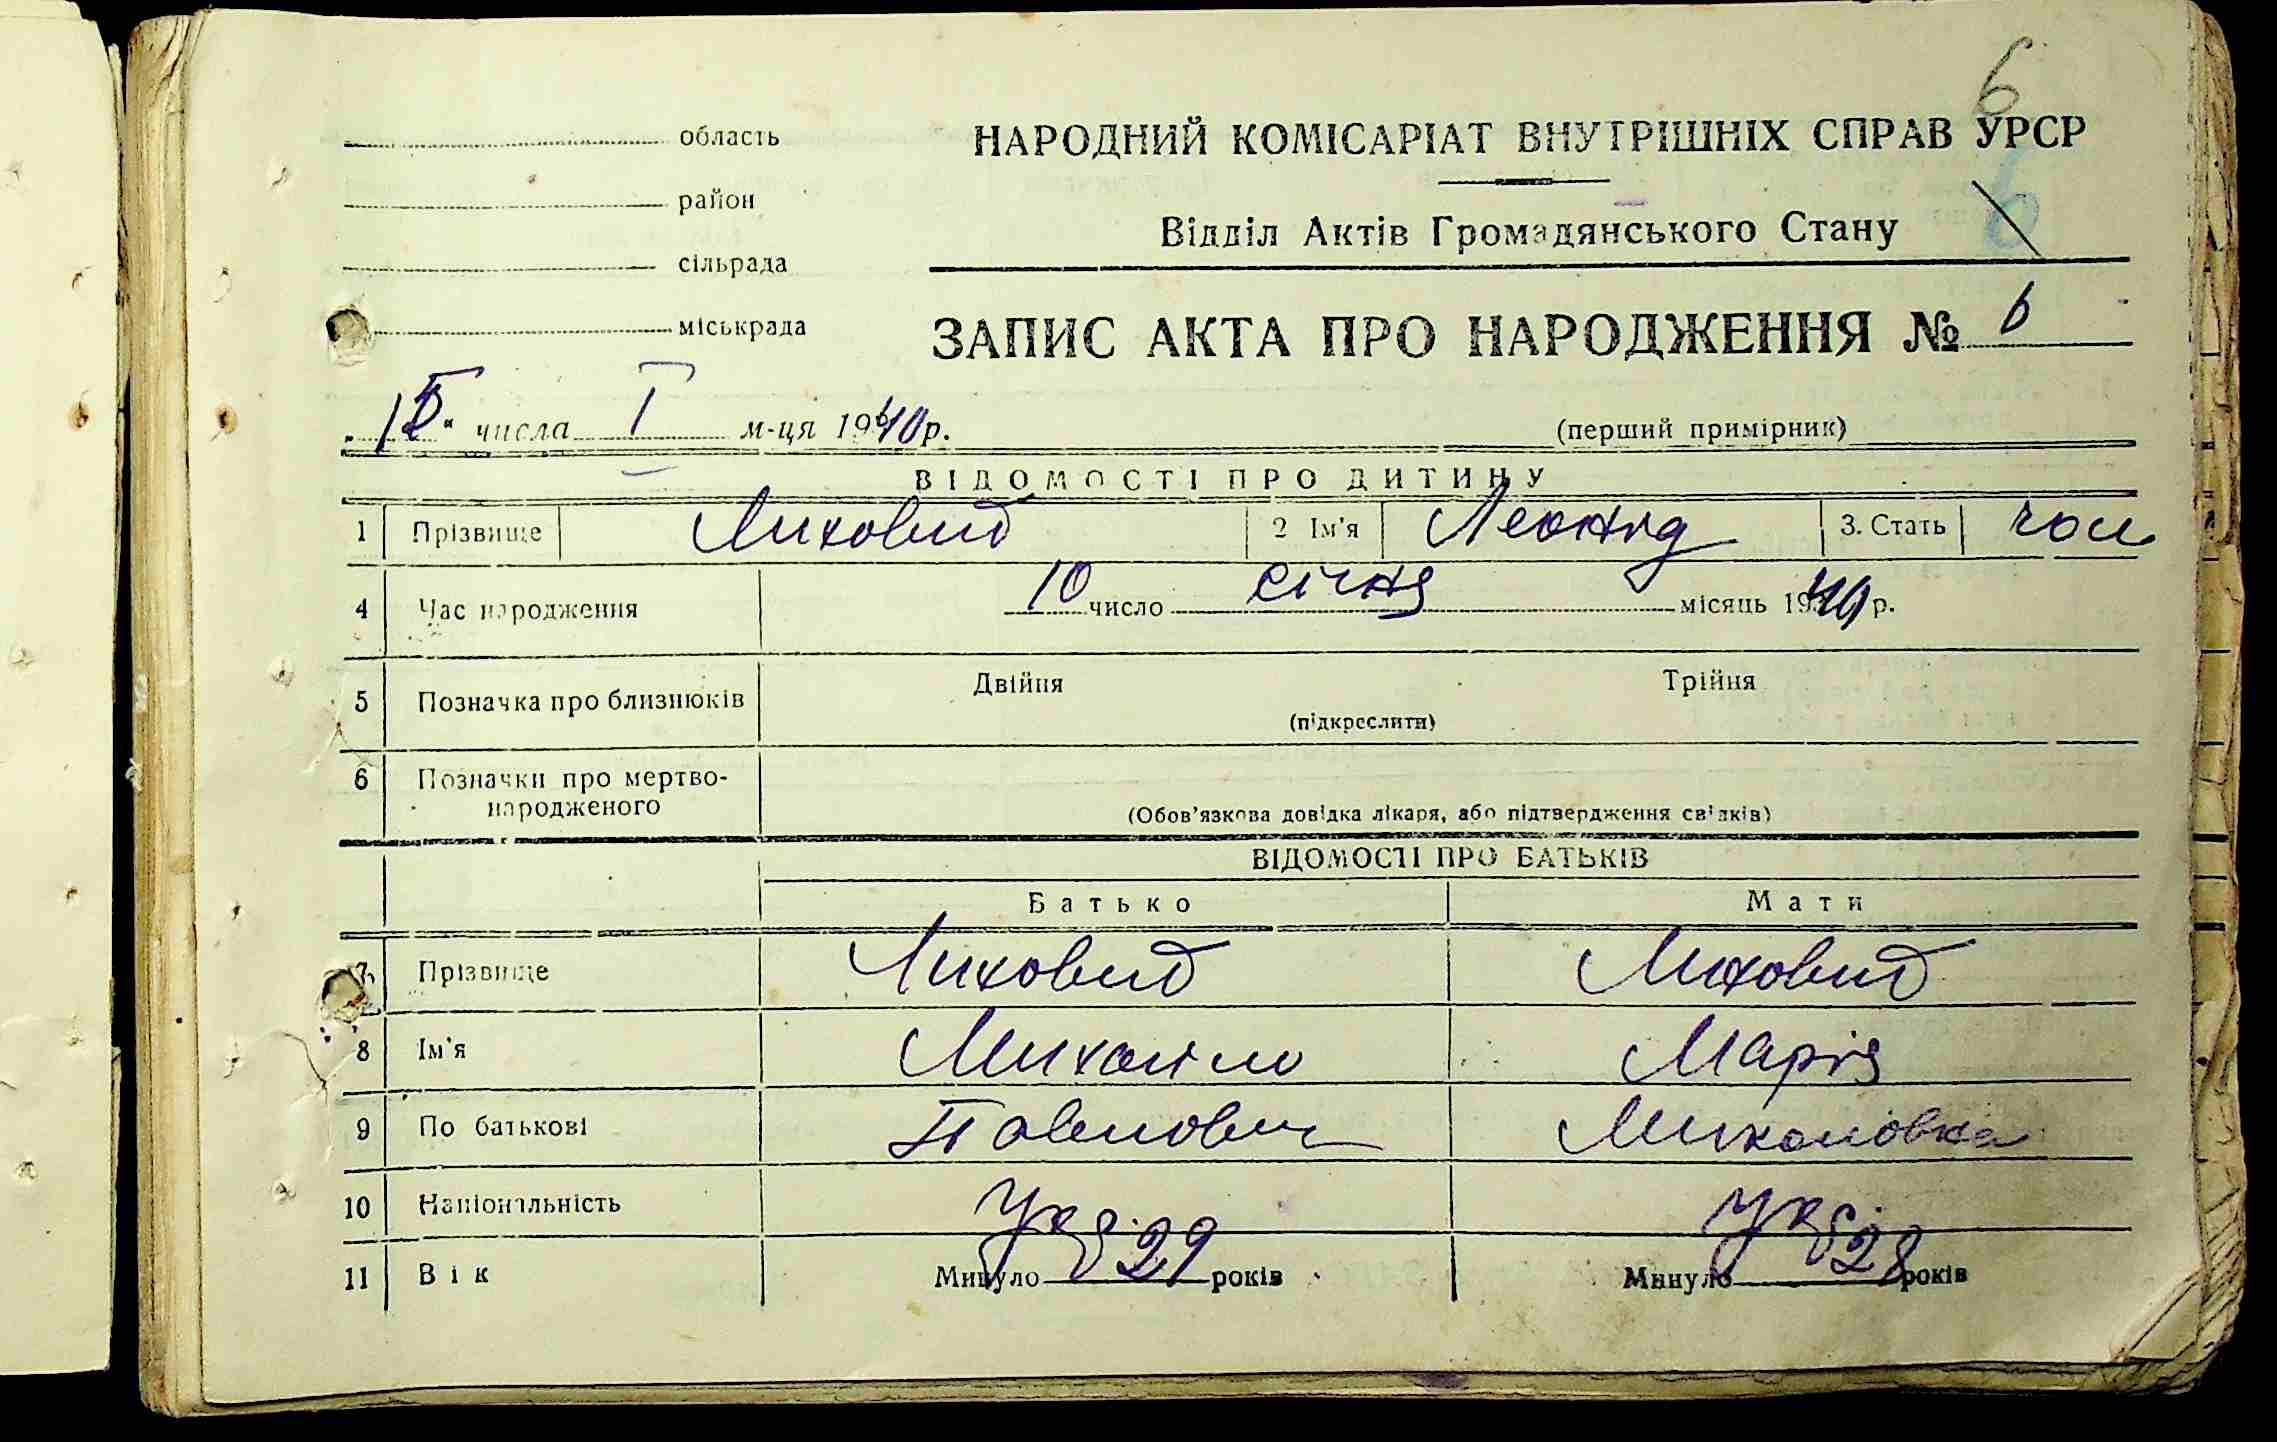 6
область
НАРОДНИЙ КОМІСАРІАТ ВНУТРІШНІХ СПРАВ УРСР
район
Відділ Актів Громадянського Стану
6
сільрада
міськрада
ЗАПИС АКТА ПРО НАРОДЖЕННЯ № 6
" числа I м-ця 1940 р.
(перший примірник)
ВІДОМОСТІ ПРО ДИТИНУ
1 Прізвище Лиховид 2 Ім'я Леонід 3. Стать чол
4 Час народження 10 число січня місяць 1940 р.
5 Позначка про близнюків Двійня Трійня
(підкреслити)
6 Позначки про мертво-
народженого
(Обов'язкова довідка лікаря, або підтвердження свідків)
ВІДОМОСТІ ПРО БАТЬКІВ
Батько Мати
7 Прізвище Лиховид Лиховид
8 Ім'я Михайло Марія
9 По батькові Павлович Миколовна
10 Національність Укр Укр
11 Вік Минуло 29 років Минуло 28 років